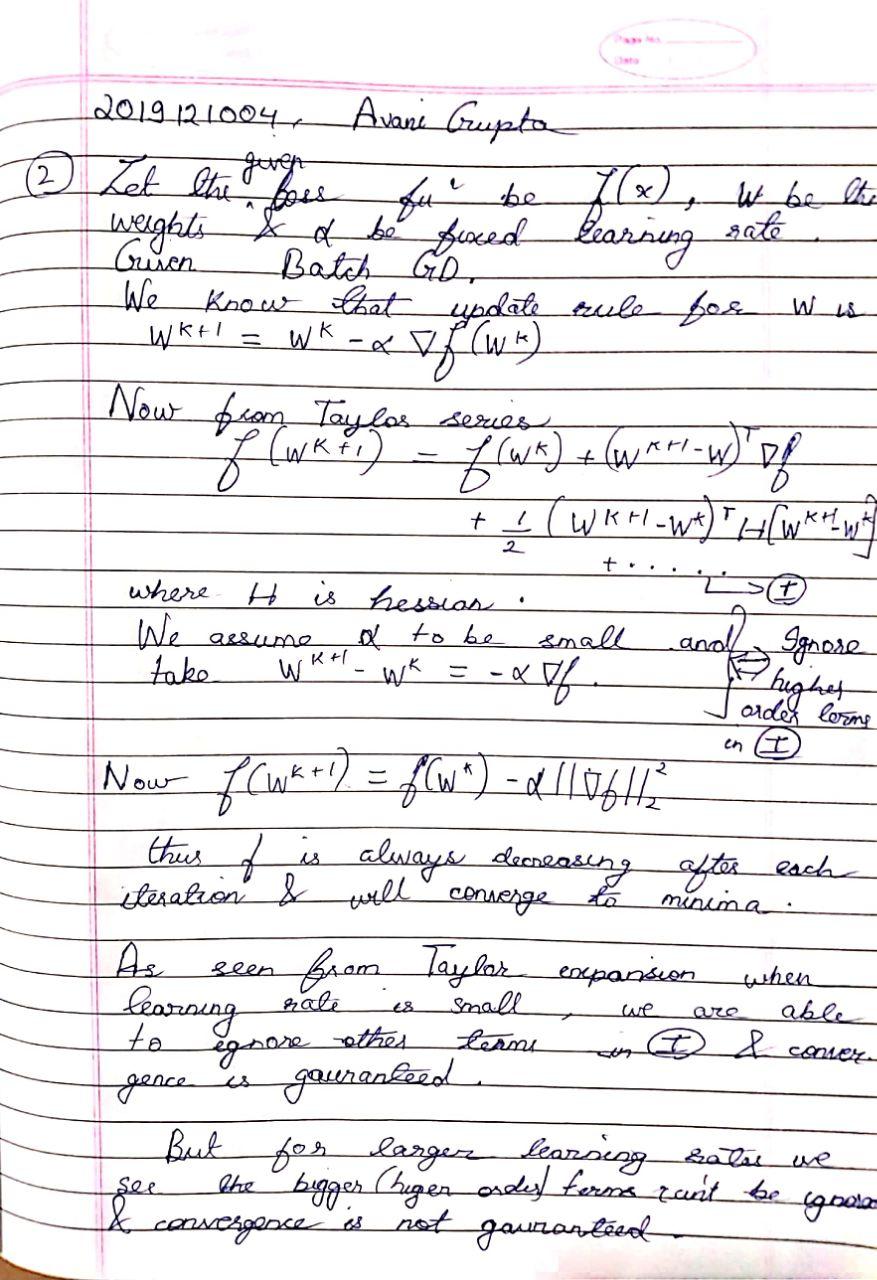 Page No.
Date
2019121004, Avani Gupta
② Let the given loss fuⁿ be f(x), W be the
weights & α be fixed learning rate.
Given Batch GD,
We know that update rule for W is
W^{K+1} = W^K - α ∇f(W^K)
Now from Taylor series
f(W^{K+1}) = f(W^K) + (W^{K+1} - W)^T ∇f
+ 1/2 (W^{K+1} - W^K)^T H[W^{K+1} - W^K]
+ . . . . . → Ⓘ
where H is hessian.
We assume α to be small and Ignore
take W^{K+1} - W^K = -α ∇f. higher
order terms
in Ⓘ
Now f(W^{K+1}) = f(W^K) - α||∇f||₂²
thus f is always decreasing after each
iteration & will converge to minima.
As seen from Taylor expansion when
learning rate is small, we are able
to ignore other terms in Ⓘ & conver-
gence is gauranteed.
But for larger learning rates we
see the bigger (higer order) terms can't be ignore
& convergence is not gauranteed.